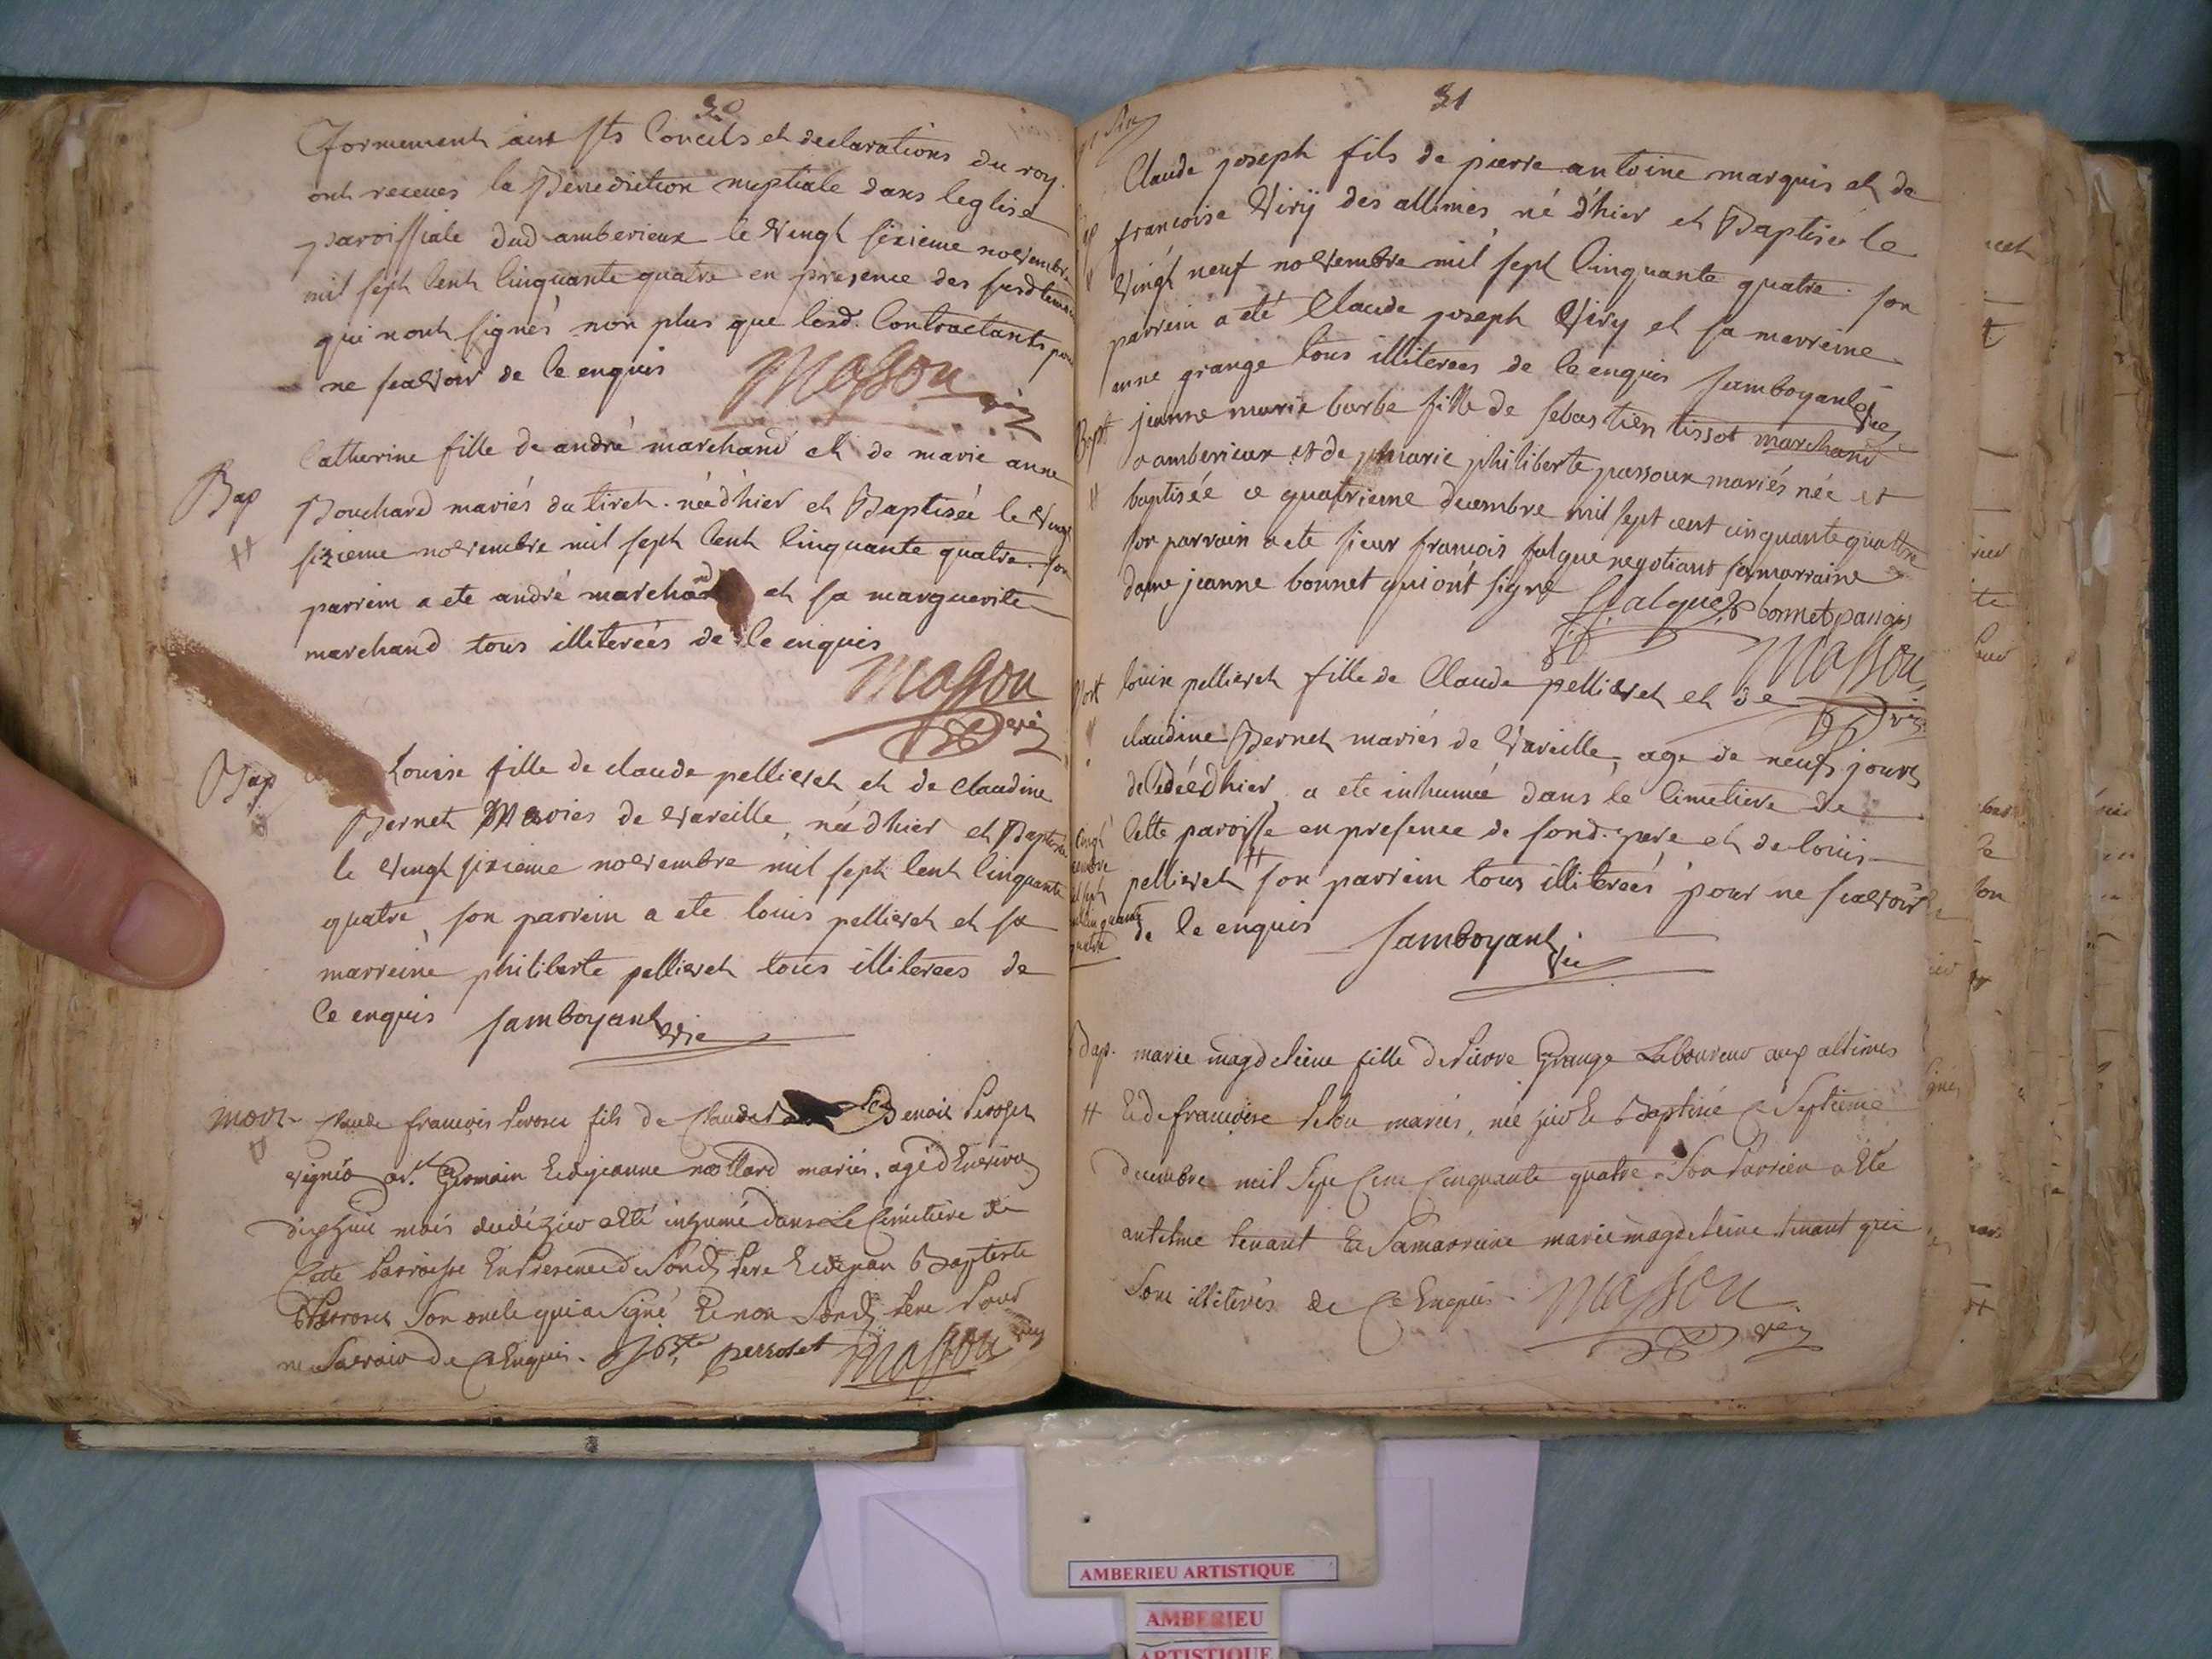 30
formement aux sts Concils et declarations du roy
ont receues la Benediction nuptiale dans leglise
paroissiale dud amberieux le vingt sixieme novembre
mil sept cent cinquante quatre en presence des susd temoins
qui nont signés non plus que lesd. Contractants pour
ne scavoir de ce enquis Masson vic
Bap
Catherine fille de andré marchand et de marie anne
Bouchard mariés du tiret. née dhier et Baptisée le vingt
sixieme novembre mil sept cent cinquante quatre. son
parrein a ete andré marchand et sa marguerite
marchand tous illiterées de ce enquis
Masson
vic
Bap
Louise fille de claude pellieret et de claudine
Bernet Mariés de vareille, née dhier et Baptisée
le vingt sixieme novembre mil sept cent cinquante
quatre, son parrein a ete louis pellieret et sa
marreine philiberte pellieret tous illiterees de
ce enquis Jamboyant vic
mort
Claude françois peroset fils de Claude Benoit perosset
vigneron a st. Germain et de jeanne mollard mariés, agé d'Environ
dixhuit mois decedé hier a Eté inhumé dans Le Cimetiere de
Cette parroisse En Presence de sond. pere et de jean Baptiste
Perroset Son oncle qui a Signé Et non Sond. pere Pour
ne Scavoir de ce Enquis. J Bte perrotet Masson vic
31
Claude joseph fils de pierre antoine marquis et de
francoise Viry des allimes né d'hier et Baptisé le
vingt neuf novembre mil sept Cinquante quatre. son
parrein a eté Claude joseph Viry et sa marreine
anne grange tous illiterees de ce enquis Jamboyant vic
Bapt
jeanne marie barbe fille de sebastien tissot marchand
a amberieux et de marie philiberte passoux mariés née et
baptisée ce quatrieme decembre mil sept cent cinquante quattre
son parrain a ete sieur françois falque negotiant sa marraine
dame jeanne bonnet qui ont signé
f. falque bonnet
Masson
vic
Mort
louise pellieret fille de Claude pellieret et de
claudine Bernet mariés de vareille, age de neuf jours
decedée dhier, a ete inhumée dans le Cimetiere de
Cette paroisse en presence de sond. pere et de louis
pellieret son parrein tous illiterées pour ne scavoir
de ce enquis Jamboyant vic
cinquante
quatre
Bap.
marie magdeleine fille de Pierre Grange Laboureur aux alimes
Et de françoise mariés, née hier Et Baptisée ce Septieme
decembre mil Sept Cent Cinquante quatre. Son Parrein a Eté
antelme tenant Et Sa marreine marie magdeleine tenant qui
Sont illiterés de Ce Enquis. Masson
vic
AMBERIEU ARTISTIQUE
AMBERIEU
ARTISTIQUE